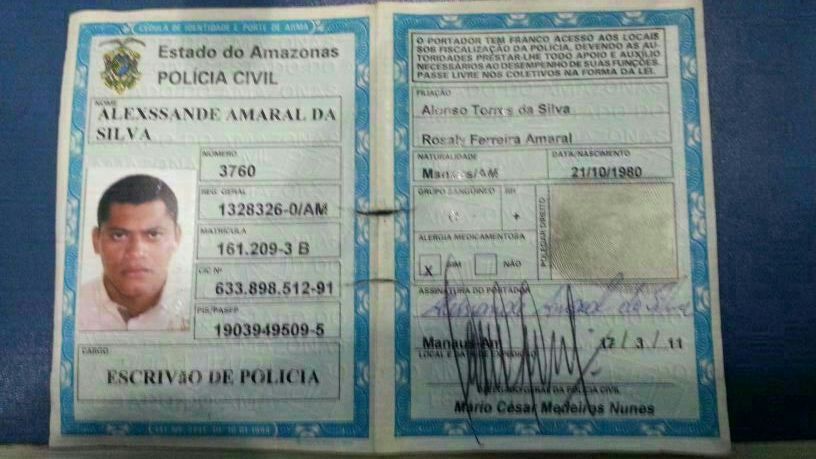 CÉDULA DE IDENTIDADE E PORTE DE ARMA
Estado do Amazonas
POLÍCIA CIVIL
NOME
ALEXSSANDE AMARAL DA
SILVA
NÚMERO
3760
REG. GERAL
1328326-0/AM
MATRÍCULA
161.209-3 B
CIC Nº
633.898.512-91
PIS/PASEP
1903949509-5
CARGO
ESCRIVãO DE POLICIA
O PORTADOR TEM FRANCO ACESSO AOS LOCAIS
SOB FISCALIZAÇÃO DA POLÍCIA, DEVENDO AS AU-
TORIDADES PRESTAR-LHE TODO APOIO E AUXÍLIO
NECESSÁRIOS AO DESEMPENHO DE SUAS FUNÇÕES.
PASSE LIVRE NOS COLETIVOS NA FORMA DA LEI.
FILIAÇÃO
Alonso Torres da Silva
Rosaly Ferreira Amaral
NATURALIDADE
Manaus/AM
DATA/NASCIMENTO
21/10/1980
GRUPO SANGUÍNEO
RH
+
POLEGAR DIREITO
ALERGIA MEDICAMENTOSA
X SIM NÃO
ASSINATURA DO PORTADOR
Manaus-Am 17/3/11
LOCAL E DATA DE EXPEDIÇÃO
GERAL DA POLÍCIA CIVIL
Mário César Medeiros Nunes